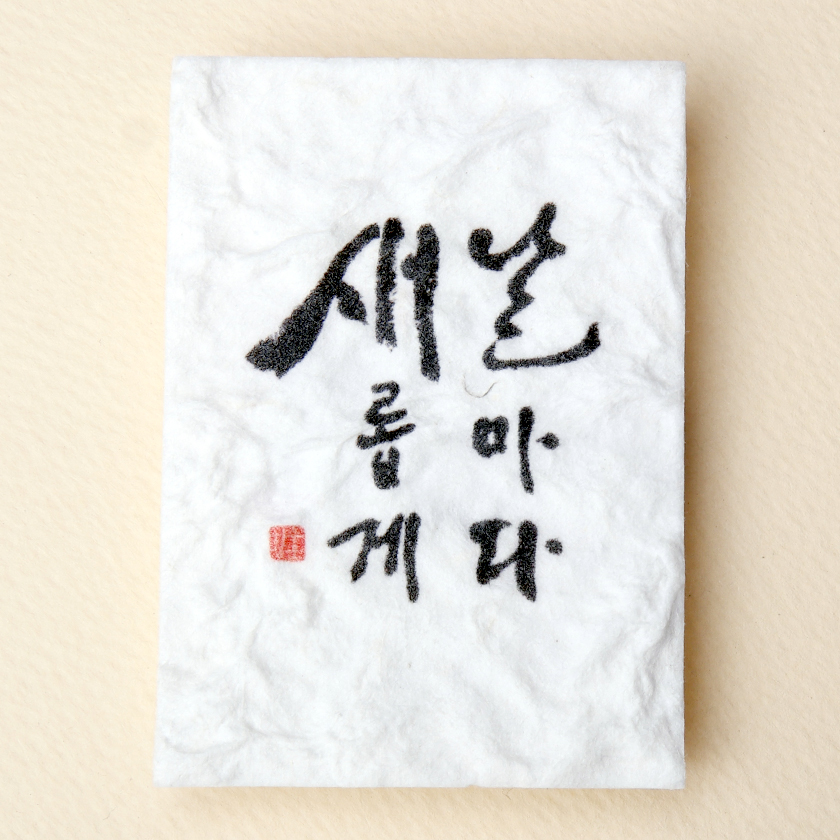 날마다
새롭게